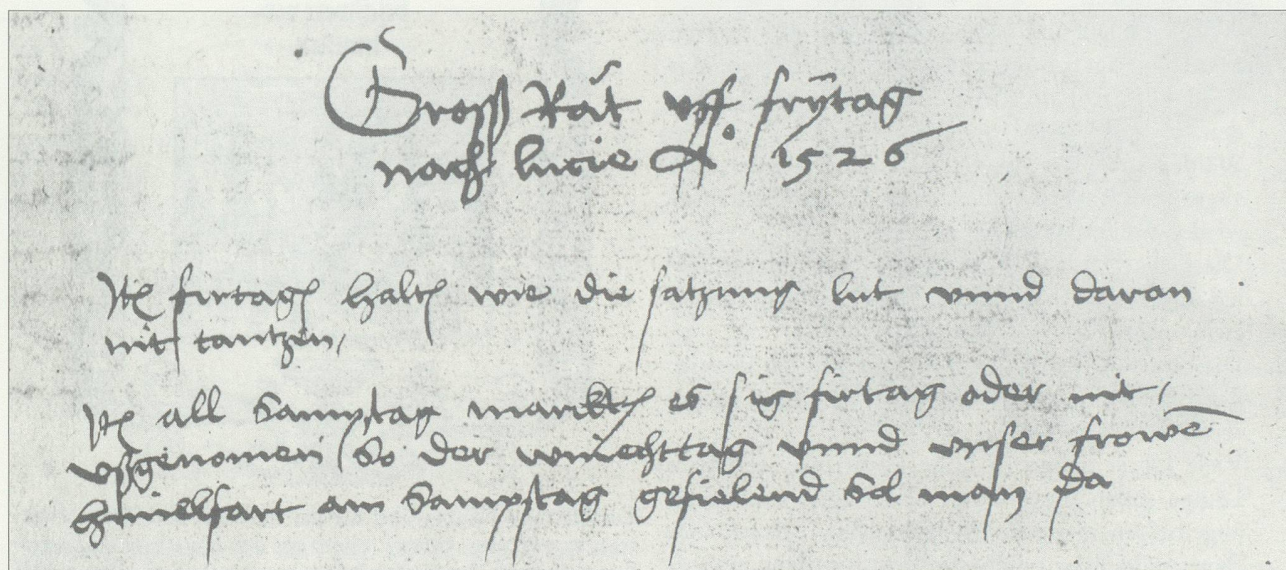 Gross Rät vff frÿtag
nach lucie Aº 1526
Itē firtagē haltē wie die satzung lut vnnd daran
nit tantzen,
Itē all Sampstag marcktē es sig firtag oder nit,
vßgenomen So der winechttag vnnd vnser frowē
himelfart am Sampstag gefielend Sol man da